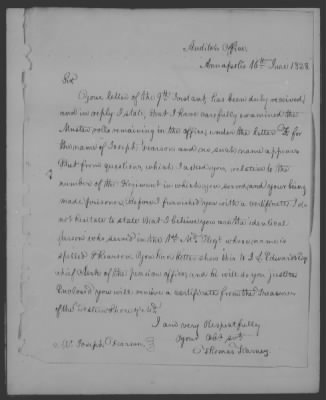 Auditors Office,
Annapolis 16th June 1828
Sir
Your letter of the 9th Instant, has been duly received
and in reply I state, that I have carefully examined the
Muster rolls remaining in the office, under the letter
for the name of Joseph Pearson and no such name appears
that from questions, which I asked you, relative to the
number of the Regiment in which you served and your being
made prisoner, before I furnished you with a certificate I do
not hesitate to state that I believe you are the identical
person who served in the Regt whose name is
spelled Pearson. You had better show this to Edwards Esq
chief clerk of the pension office, and he will do you justice
Enclosed you will receive a certificate from the Treasurer
of the Western Shore of Md.
I am very Respectfully
Your Obt Svt
Thomas Karney
Mr Joseph Pearson